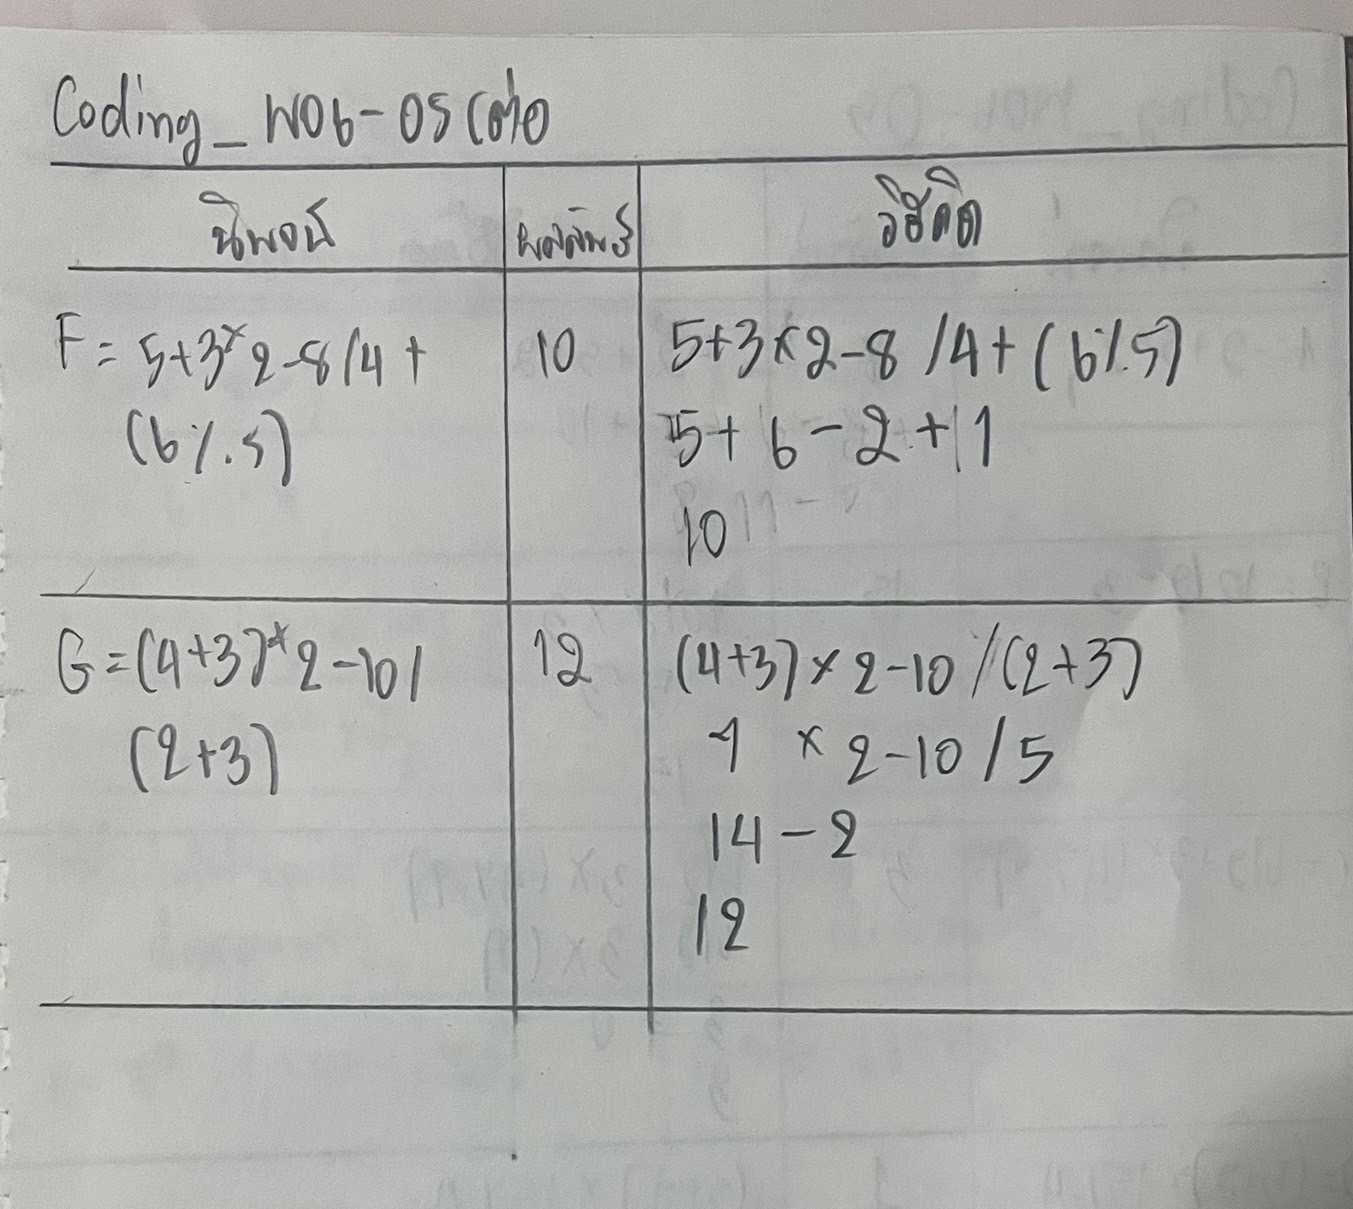 Coding_W06-05 (ต่อ)
นิพจน์ ผลลัพธ์ วิธีคิด
F = 5+3*2-8/4+ 10 5+3×2-8/4+(6%5)
(6%5) 5+6-2+1
10
G=(4+3)*2-10/ 12 (4+3)×2-10/(2+3)
(2+3) 7 × 2-10/5
14-2
12